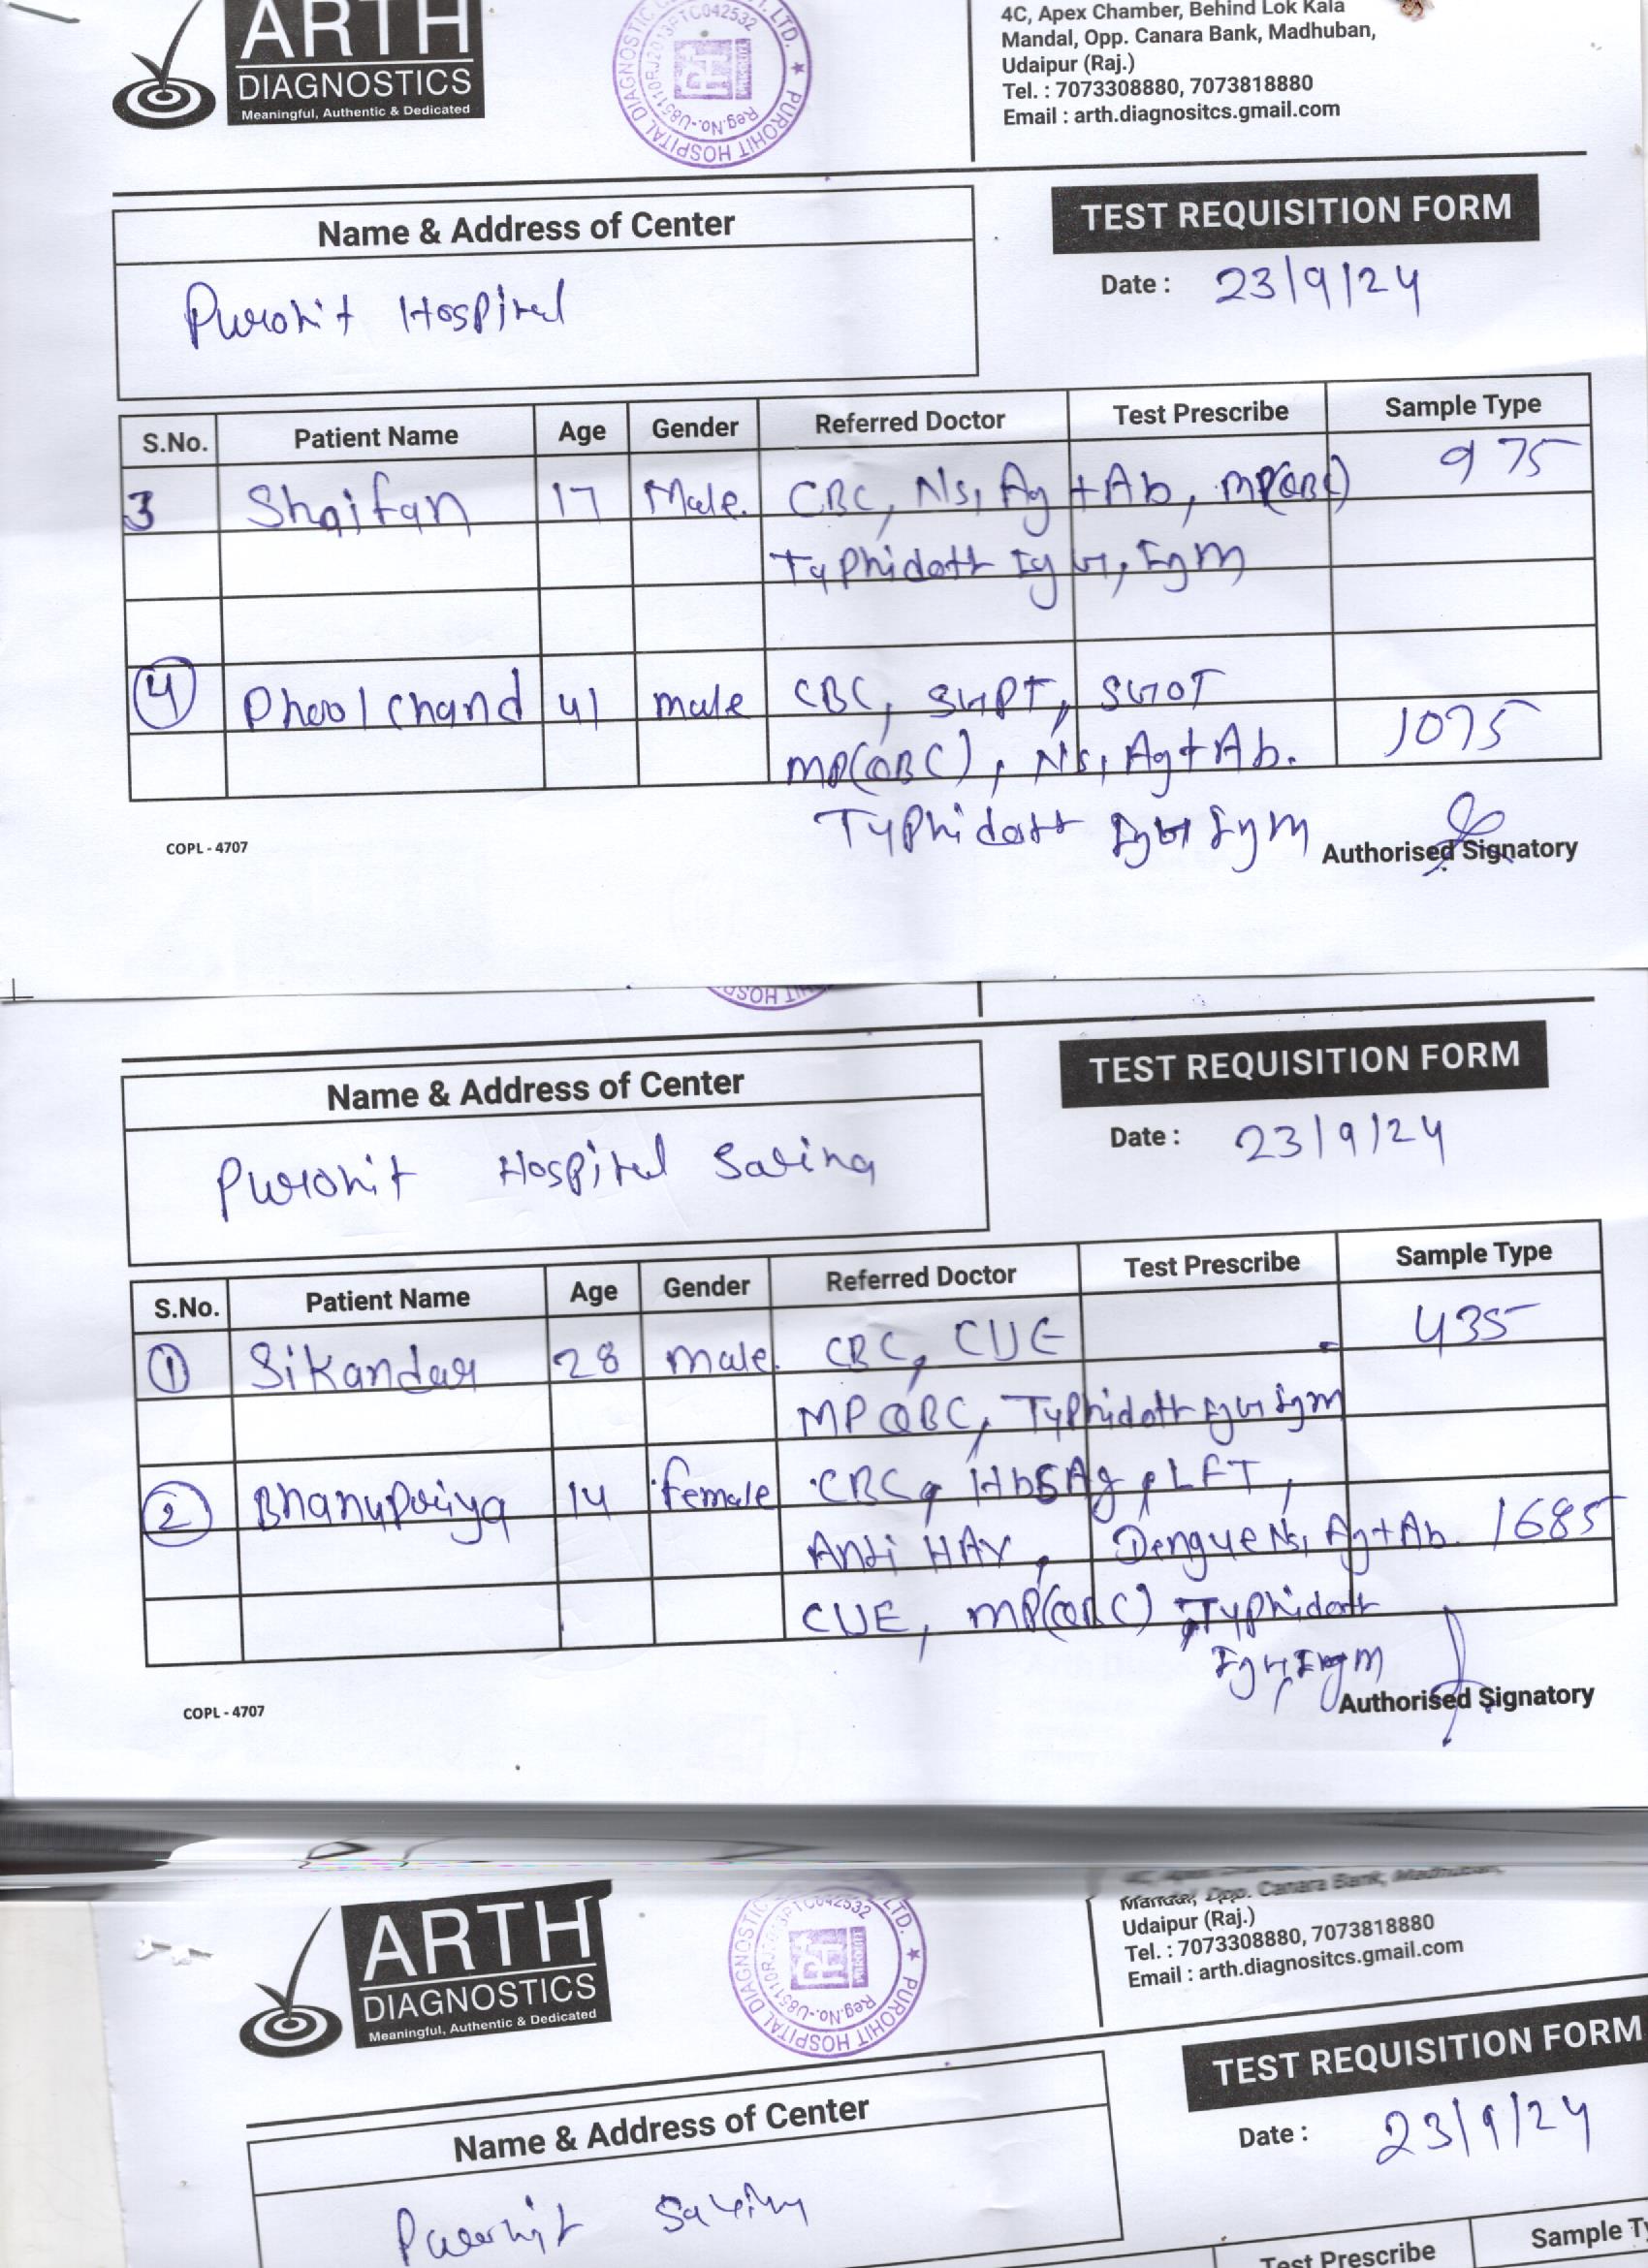 ARTH
DIAGNOSTICS
Meaningful, Authentic & Dedicated
PUROHIT HOSPITAL DIAGNOSTIC LTD. ★
Reg.No.-U85110RJ2013PTC042532
4C, Apex Chamber, Behind Lok Kala
Mandal, Opp. Canara Bank, Madhuban,
Udaipur (Raj.)
Tel. : 7073308880, 7073818880
Email : arth.diagnositcs.gmail.com
Name & Address of Center
TEST REQUISITION FORM
Purohit Hospital
Date : 23/9/24
S.No. Patient Name Age Gender Referred Doctor Test Prescribe Sample Type
3 Shaifan 17 Male. CBC, Ns1 Ag +Ab, MP(QBC) 975
Typhidott IgG, IgM
4 Phoolchand 41 male CBC, SGPT, SGOT
MP(QBC), Ns1 Ag+Ab. 1075
Typhidott IgG IgM
COPL - 4707
Authorised Signatory
Name & Address of Center
TEST REQUISITION FORM
Purohit Hospital Savina
Date : 23/9/24
S.No. Patient Name Age Gender Referred Doctor Test Prescribe Sample Type
1 Sikandar 28 male. CBC, CUE 435
MP QBC, Typhidott IgG IgM
2 Bhanupriya 14 female CBC, HbSAg, LFT,
Anti HAV, Dengue Ns1 Ag+Ab. 1685
CUE, MP(QBC), Typhidott
IgG, IgM
COPL - 4707
Authorised Signatory
ARTH
DIAGNOSTICS
Meaningful, Authentic & Dedicated
PUROHIT HOSPITAL DIAGNOSTIC LTD. ★
Reg.No.-U85110RJ2013PTC042532
4C, Apex
Mandal, Opp. Canara Bank, Madhuban,
Udaipur (Raj.)
Tel. : 7073308880, 7073818880
Email : arth.diagnositcs.gmail.com
Name & Address of Center
TEST REQUISITION FORM
Purohit Savina
Date : 23/9/24
Test Prescribe Sample Ty